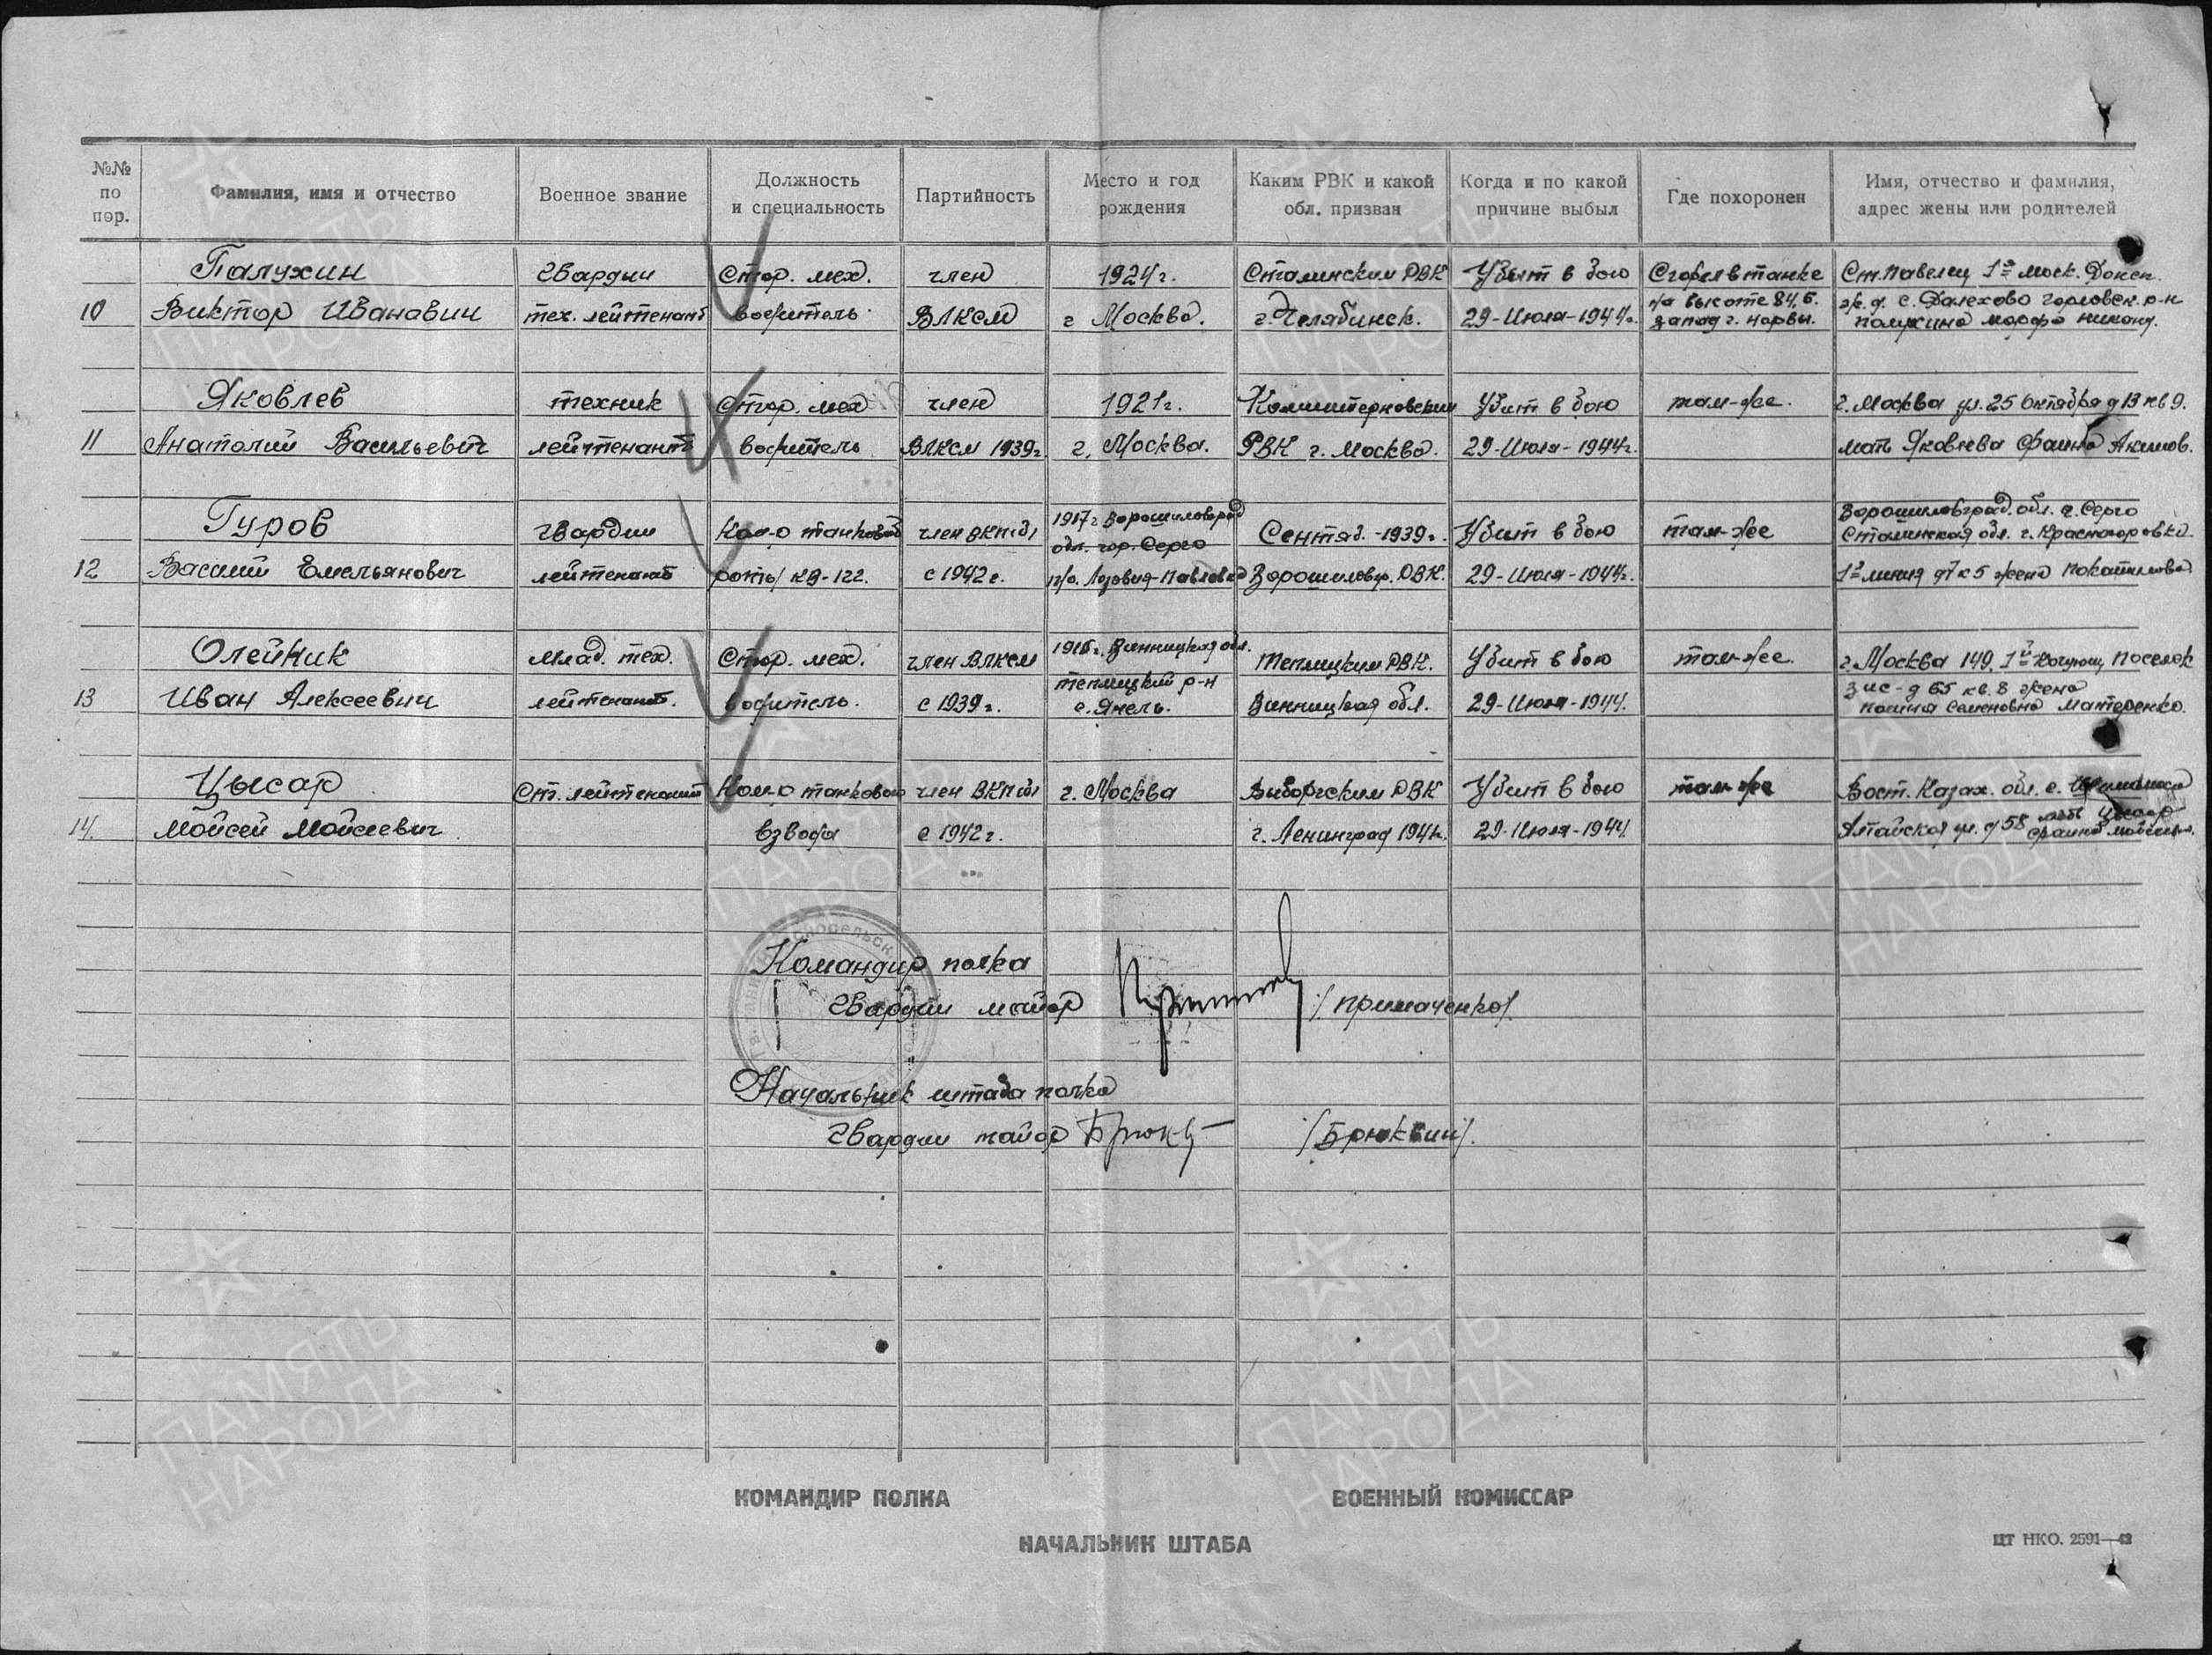 №№ по пор.
Фамилия, имя и отчество
Военное звание
Должность и специальность
Партийность
Место и год рождения
Каким РВК и какой обл. призван
Когда и по какой причине выбыл
Где похоронен
Имя, отчество и фамилия, адрес жены или родителей
Палухин гвардии Стар. мех. член 1924 г. Сталинским РВК Убит в бою Сгорел в танке Ст. Павелец 1й Моск. Донск.
10 Виктор Иванович тех. лейтенант водитель ВЛКСМ г Москва. г. Челябинск. 29-Июля-1944г. на высоте 84,6. запад г. Нарвы. ж.д. с. горловск. р-н
Яковлев техник Стар. мех член 1921г. Коминтерновским Убит в бою там-же. г. Москва ул. 25 Октября д 13 кв 9.
11 Анатолий Васильевич лейтенант водитель ВЛКСМ 1939г. г. Москва. РВК г. Москва. 29-Июля-1944г. мать Яковлева Фаина Акимов.
Гуров гвардии Ком-р танковой член ВКП(б) 1917г Ворошиловград обл. гор. Серго Сентяб.-1939г. Убит в бою там-же Ворошиловград. обл. г. Серго Сталинская обл. г. Красногоровка.
12 Василий Емельянович лейтенант роты КВ-122. с 1942г. п/о. Лозовая-Павловка Ворошиловгр. РВК. 29-Июля-1944г. 1я линия д 7 к 5 жена
Олейник Млад. тех. Стар. мех. член ВЛКСМ 1918г. Винницкая обл. Теплицким РВК. Убит в бою там-же. г. Москва 149. поселок
13 Иван Алексеевич лейтенант. водитель. с 1939г. Теплицкий р-н Винницкая обл. 29-Июля-1944. зис-д 65 кв. 8 жена Семеновна Матеренко.
Цысар Ст. лейтенант Ком-р танкового член ВКП(б) г. Москва Выборгским РВК Убит в бою там-же Вост. Казах. обл.
14. Мойсей Мойсеевич взвода с 1942г. г. Ленинград 1941г. 29-Июля-1944. Алтайская ул. д 58 мать Цысар
Командир полка
гвардии майор /Примаченко/.
Начальник штаба полка
гвардии майор Брюкв /Брюквин/.
КОМАНДИР ПОЛКА
ВОЕННЫЙ КОМИССАР
НАЧАЛЬНИК ШТАБА
ЦТ НКО. 2591—42
ПАМЯТЬ
НАРОДА